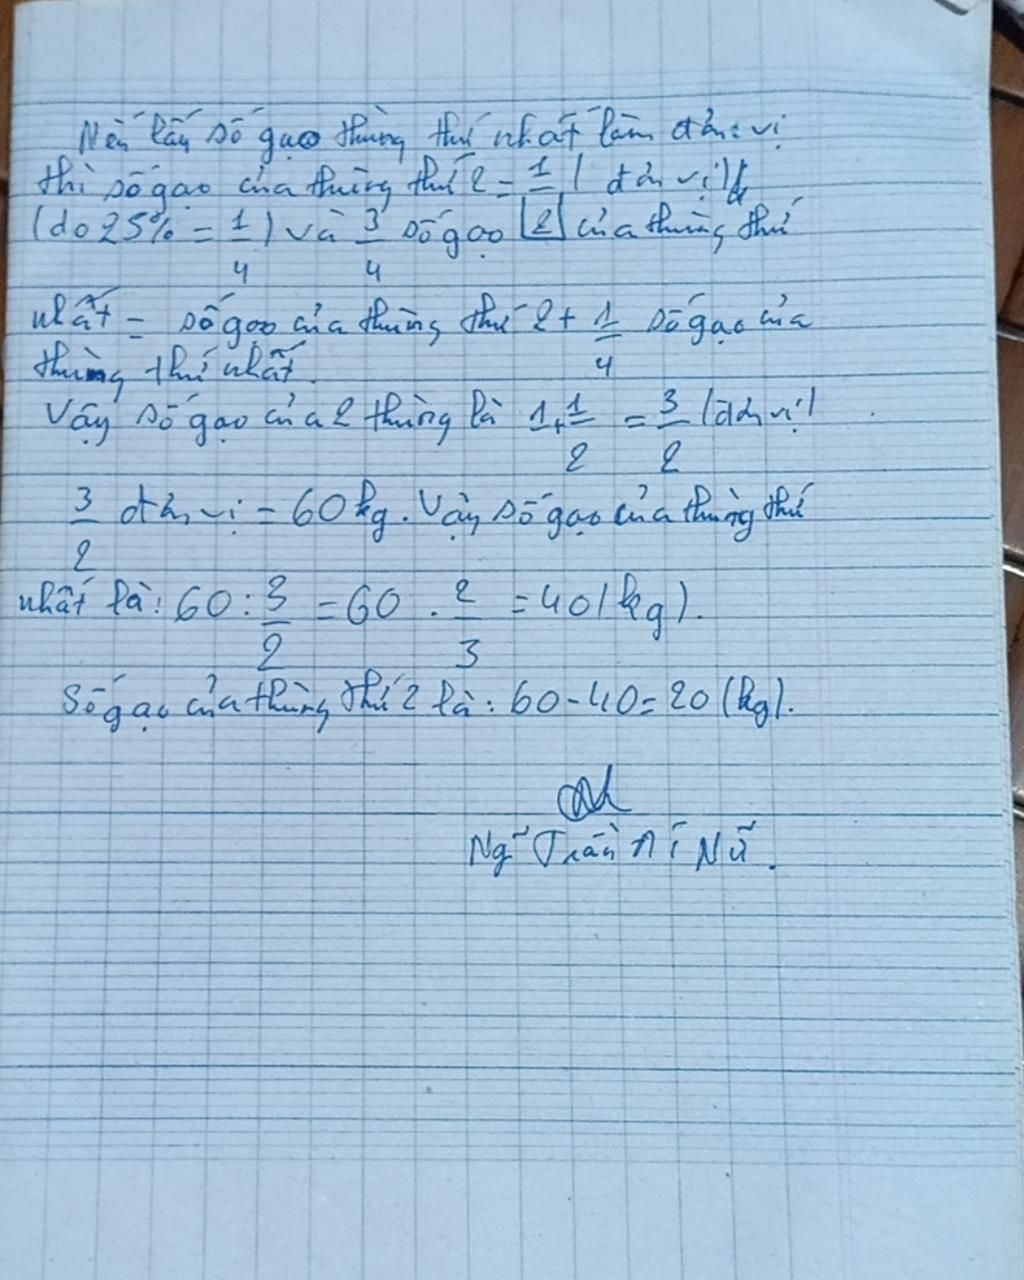 Nếu lấy số gạo thùng thứ nhất làm đơn vị
thì số gạo của thùng thứ 2 = 1/2 (đơn vị)
(do 25% = 1/4) và 3/4 số gạo của thùng thứ
nhất = số gạo của thùng thứ 2 + 1/4 số gạo của
thùng thứ nhất.
Vậy số gạo của 2 thùng là 1+1/2 = 3/2 (đơn vị)
3/2 đơn vị = 60kg. Vậy số gạo của thùng thứ
nhất là: 60 : 3/2 = 60 . 2/3 = 40 (kg).
Số gạo của thùng thứ 2 là: 60 - 40 = 20 (kg).
Trần Nữ